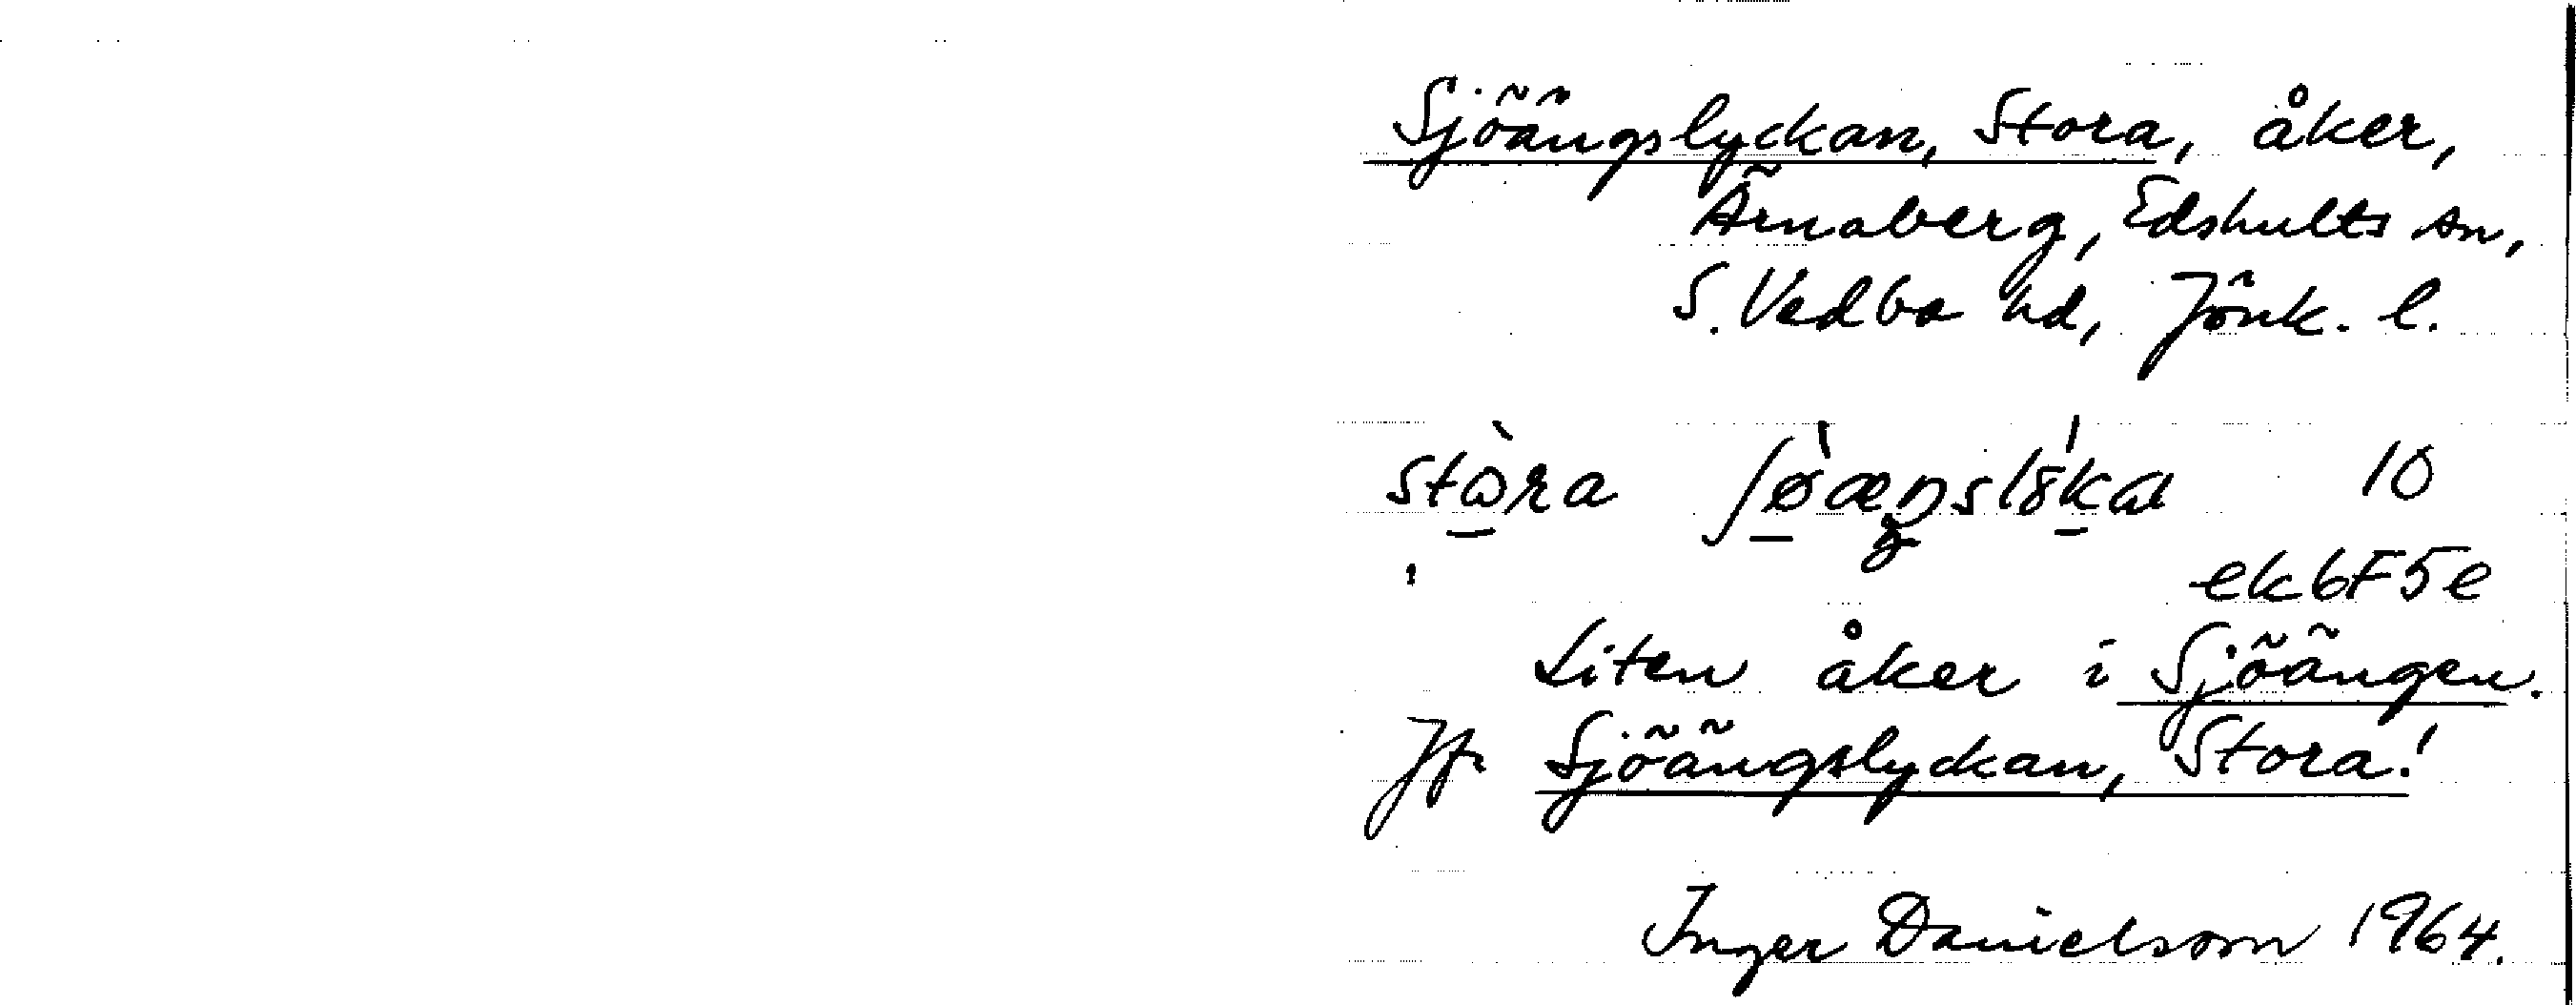 Sjöängslyckan, Stora, åker,
Ärnaberg, Edshults sn,
S. Vedbo hd, Jönk. l.
10
ek 6F5e
Liten åker i Sjöängen.
Jfr Sjöängslyckan, Stora!
Inger Danielsson 1964.